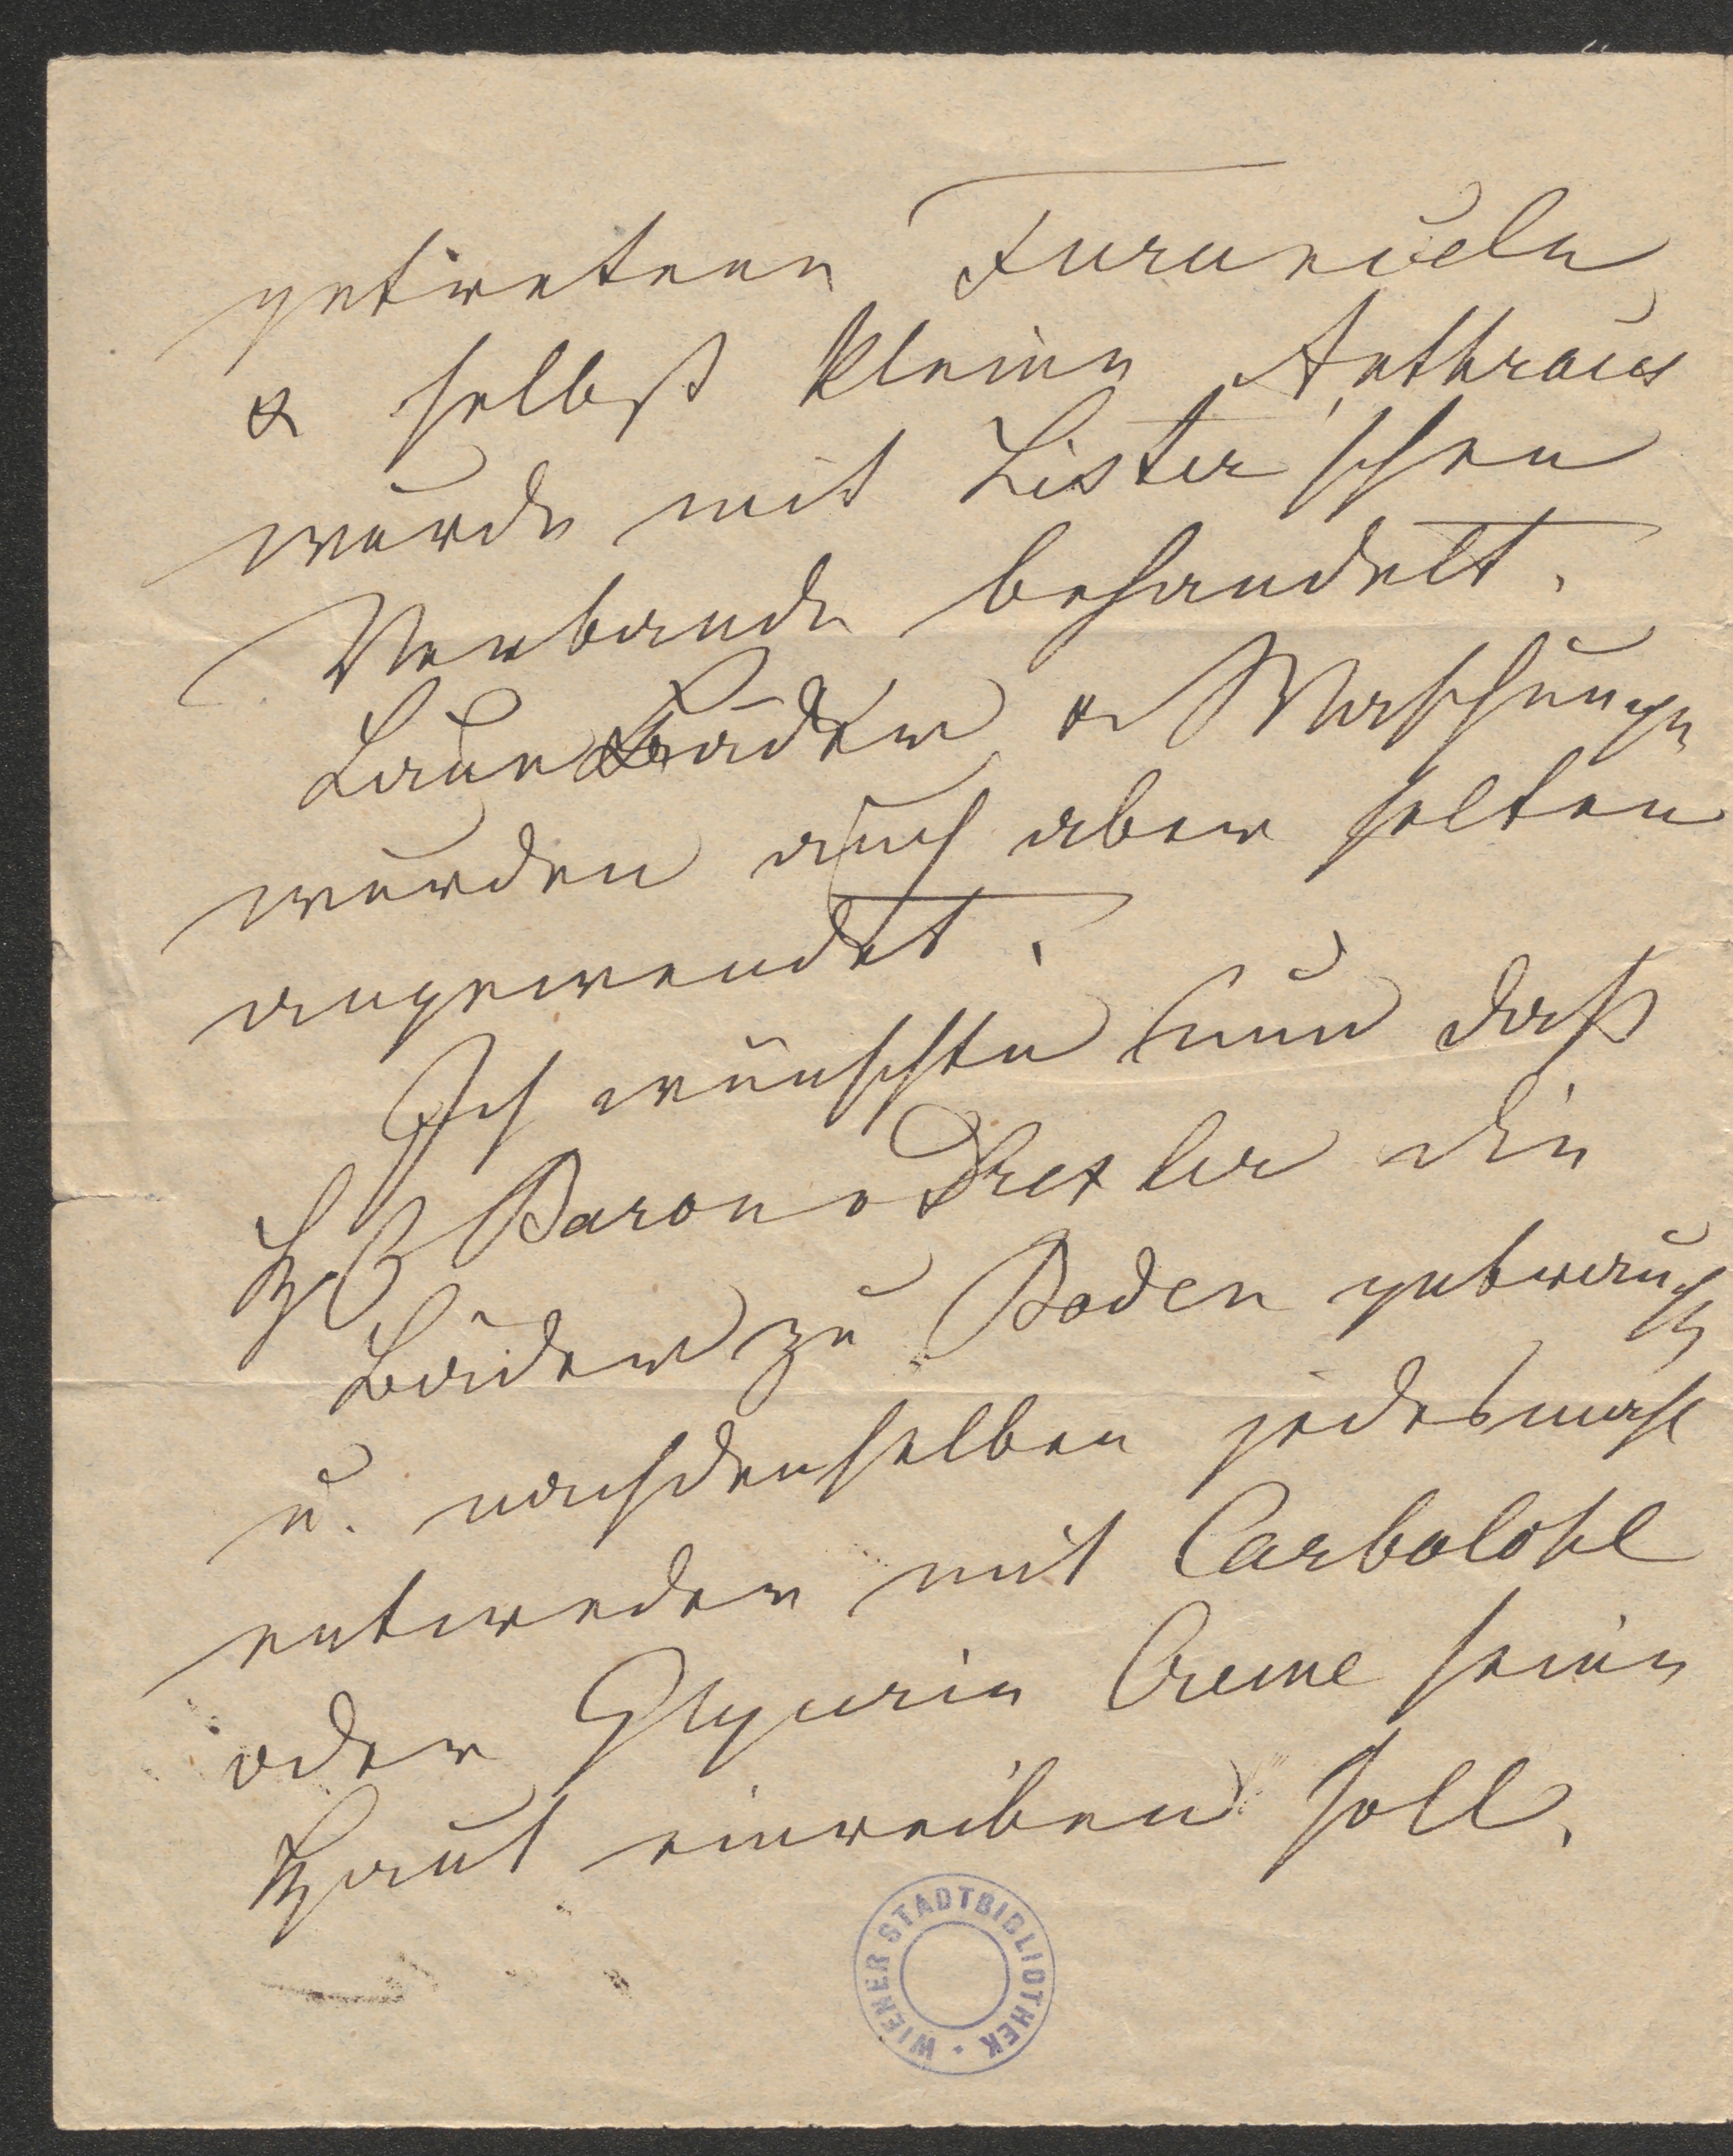 getretene Furunculn
& selbst kleine Anthrax
wurde mit Lister'schen
Verbande behandelt.
Laue Bäder & Waschungen
wurden auch aber selten
angewendet.
Ich wünschte nun daß
H Baron Drexler die
Bäder zu Baden gebrauche
u. nach denselben jedesmahl
entweder mit Carbolöhl
oder Glycerin Creme seine
Haut einreiben soll.
WIENER STADTBIBLIOTHEK